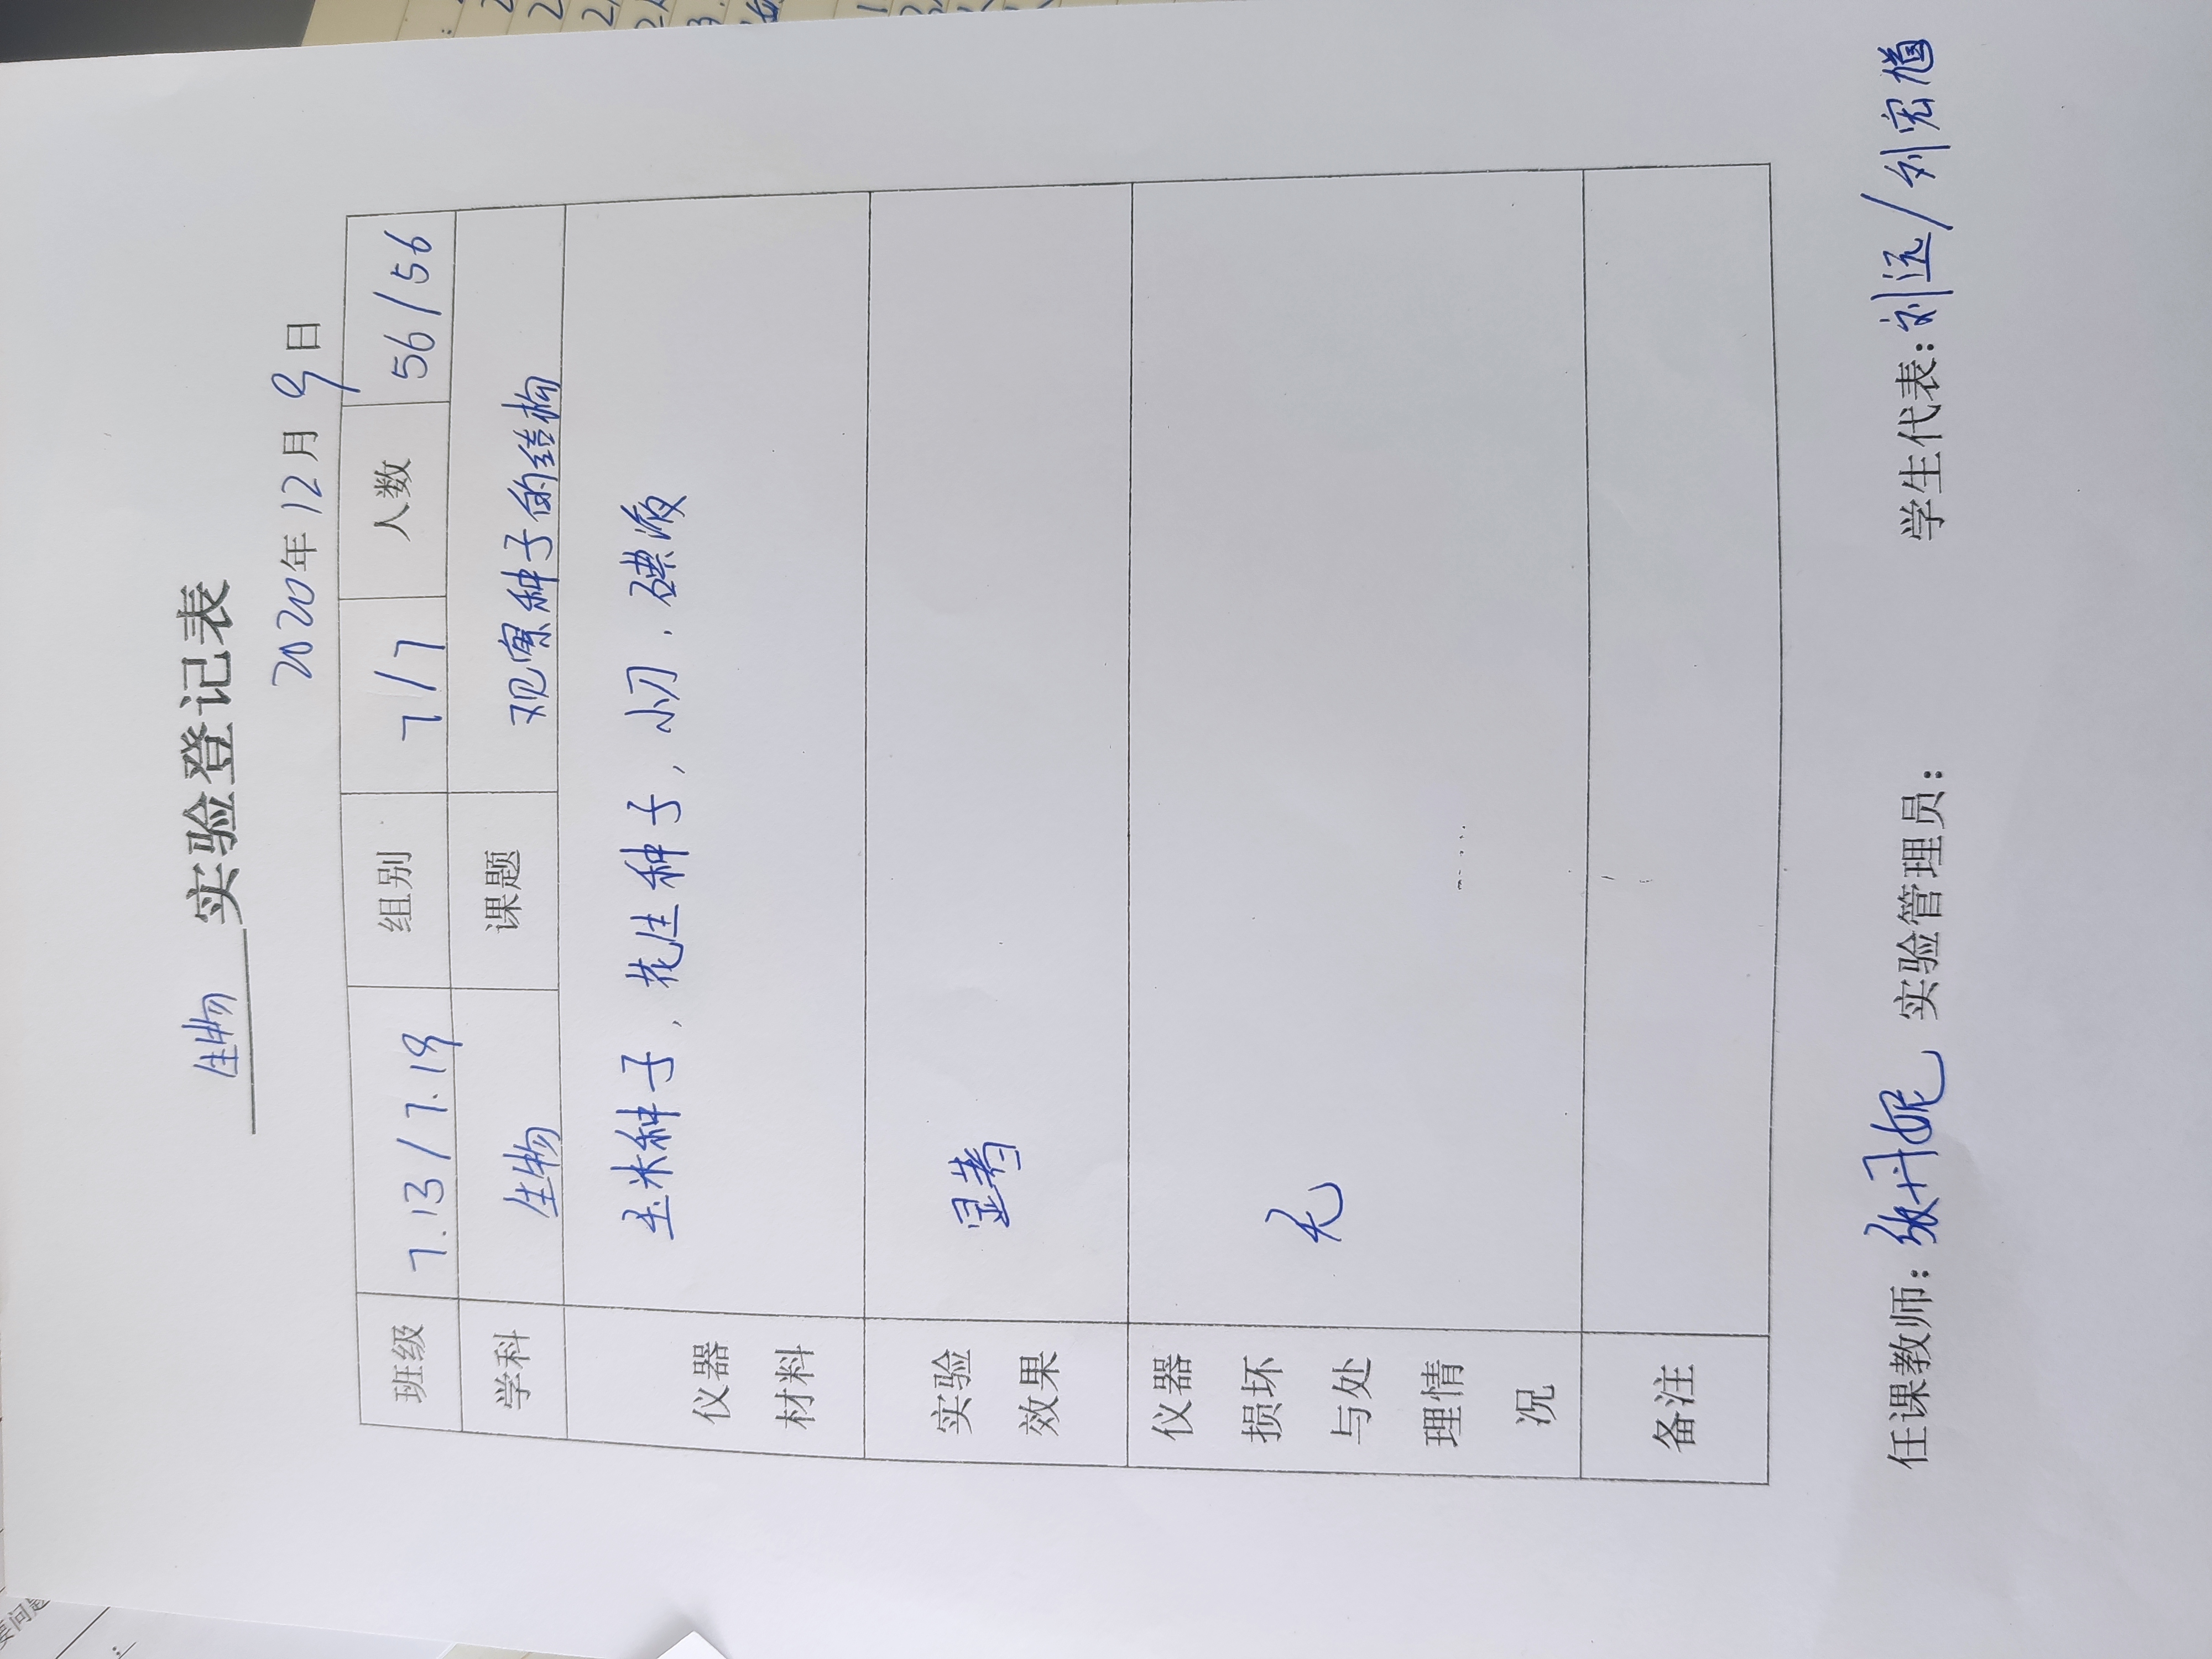 生物 实验登记表
2020年12月9日
班级 7.13/7.19 组别 7/7 人数 56/56
学科 生物 课题 观察种子的结构
仪器 玉米种子，花生种子，小刀，碘液
材料
实验 显著
效果
仪器
损坏
与处 无
理情
况
备注
任课教师：张丹妮 实验管理员： 学生代表：刘远/刘宏